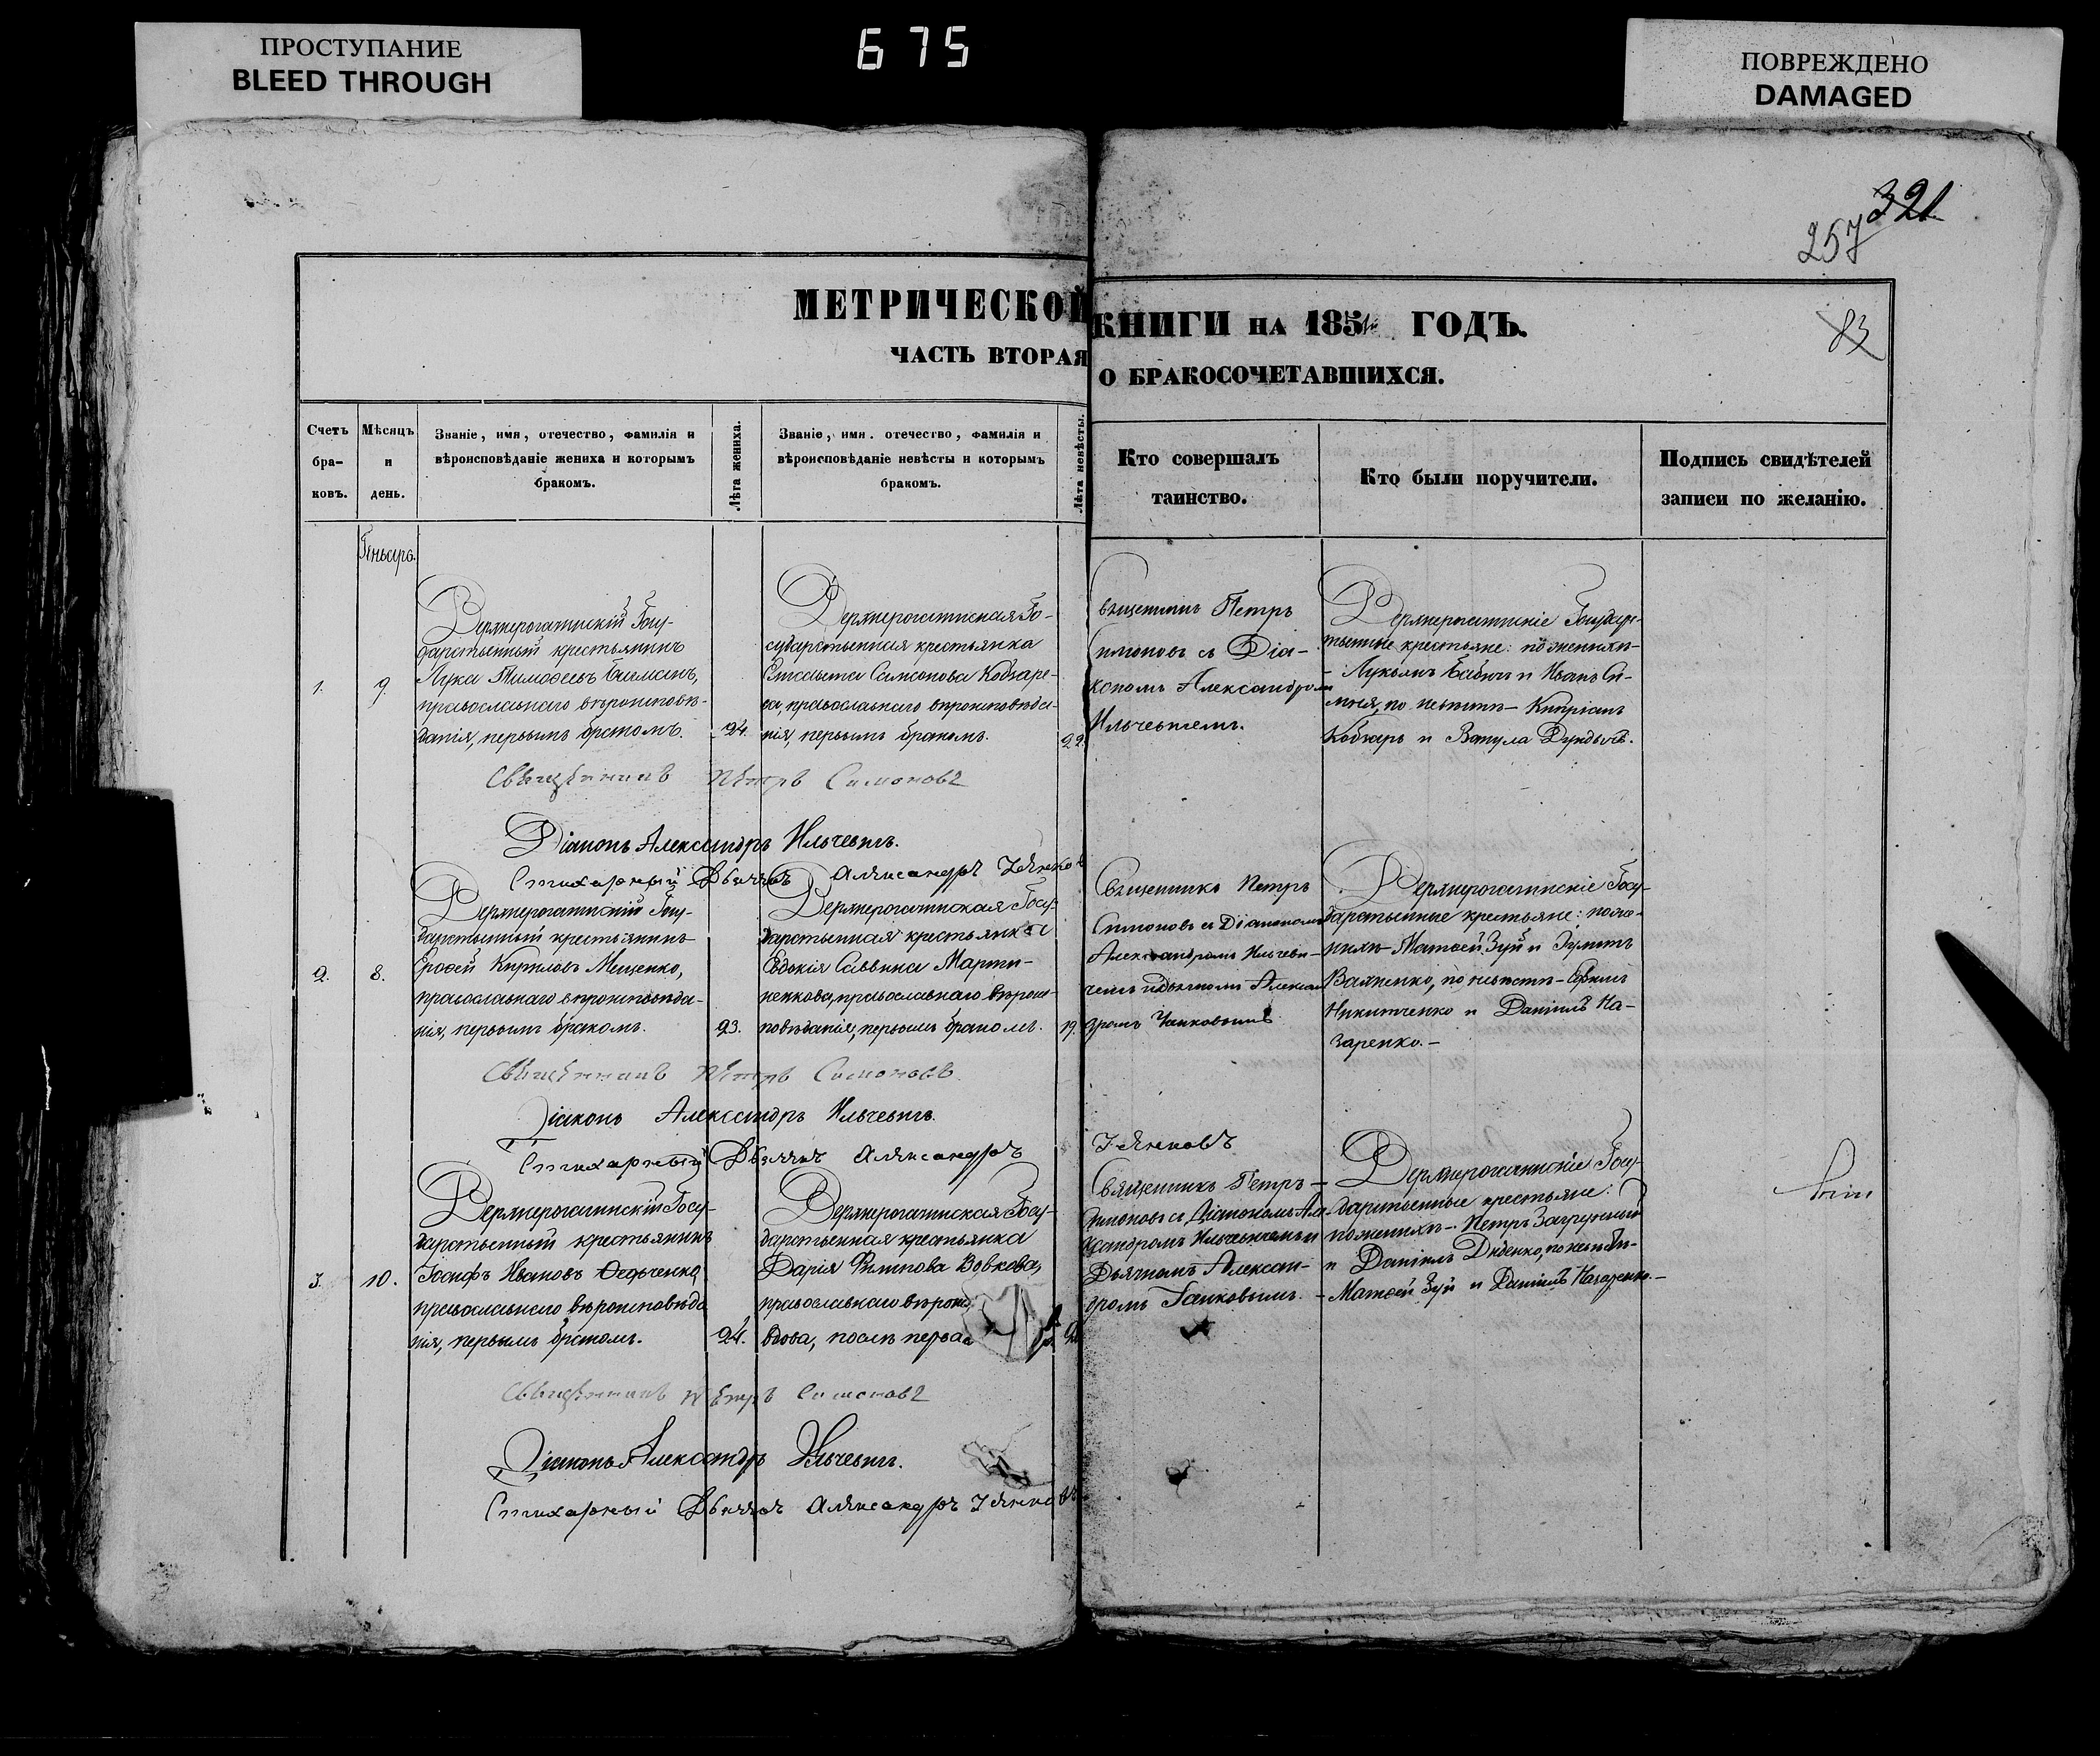 ПРОСТУПАНИЕ
BLEED THROUGH
675
ПОВРЕЖДЕНО
DAMAGED
321
257
83
МЕТРИЧЕСКОЙ КНИГИ НА 1851 ГОДЪ.
ЧАСТЬ ВТОРАЯ О БРАКОСОЧЕТАВШИХСЯ.
Счетъ
бра-
ковъ.
Мѣсяцъ
и
день.
Званіе, имя, отечество, фамилія и
вѣроисповѣданіе жениха и которымъ
бракомъ.
Лѣта жениха.
Званіе, имя. отечество, фамилія и
вѣроисповѣданіе невѣсты и которымъ
бракомъ.
Лѣта невѣсты.
Кто совершалъ
таинство.
Кто были поручители.
Подпись свидѣтелей
записи по желанію.
1.
9
Верхнерогачинскій Госу-
дарственный крестьянинъ
Лука Тимофеевъ
православнаго вѣроисповѣ-
данія, первымъ бракомъ.
24.
Верхнерогачинская Го-
сударственная крестьянка
Елисавета Самсонова Кобзаре-
ва, православнаго вѣроисповѣда-
нія, первымъ бракомъ.
22.
Священникъ Петръ
Симоновъ съ Діа-
кономъ Александромъ
Ильчевичемъ.
Верхнерогачинскіе Государ-
ственные крестьяне: по женихѣ
- Лукьянъ Бабичъ и Иванъ Си-
по невѣстѣ - Кипріанъ
Кобзарь и Вакула
Священникъ Петръ Симоновъ
Діаконъ Александръ Ильчевичъ.
Стихарный Дьячекъ Александръ
2.
8.
Верхнерогачинскій Госу-
дарственный крестьянинъ
Ерофей Кириловъ Мещенко,
православнаго вѣроисповѣда-
нія, первымъ бракомъ.
23.
Верхнерогачинская Госу-
дарственная крестьянка
Евдокія Саввина Марти-
ненкова, православнаго вѣроис-
повѣданія, первымъ бракомъ.
19.
Священникъ Петръ
Симоновъ съ Діакономъ
Александромъ Ильчеви-
чемъ и дьячкомъ Алексан
дромъ
Верхнерогачинскіе Госу-
дарственные крестьяне: по же-
нихѣ - Матфей Зуй и
по невѣстѣ - Ефимъ
Никитченко и Даніилъ На-
заренко. -
Священникъ Петръ Симоновъ
Діаконъ Александръ Ильчевичъ.
Стихарный Дьячекъ Александръ
3.
10.
Верхнерогачинскій Госу-
дарственный крестьянинъ
Іосифъ Ивановъ
православнаго вѣроисповѣда
нія, первымъ бракомъ.
24.
Верхнерогачинская Госу-
дарственная крестьянка
Дарія Филипова Вовкова,
православнаго вѣроис
вдова, послѣ перваго
Священникъ Петръ
Симоновъ съ Діакономъ Але-
ксандромъ Ильчевичемъ и
Дьячкомъ Алексан-
дромъ
Верхнерогачинскіе Госу-
дарственные крестьяне:
по женихѣ - Петръ
и Даніилъ Диденко, по невѣстѣ -
Матфей Зуй и Даніилъ Назаренко. -
Священникъ Петръ Симоновъ
Діаконъ Александръ Ильчевичъ.
Стихарный Дьячекъ Александръ